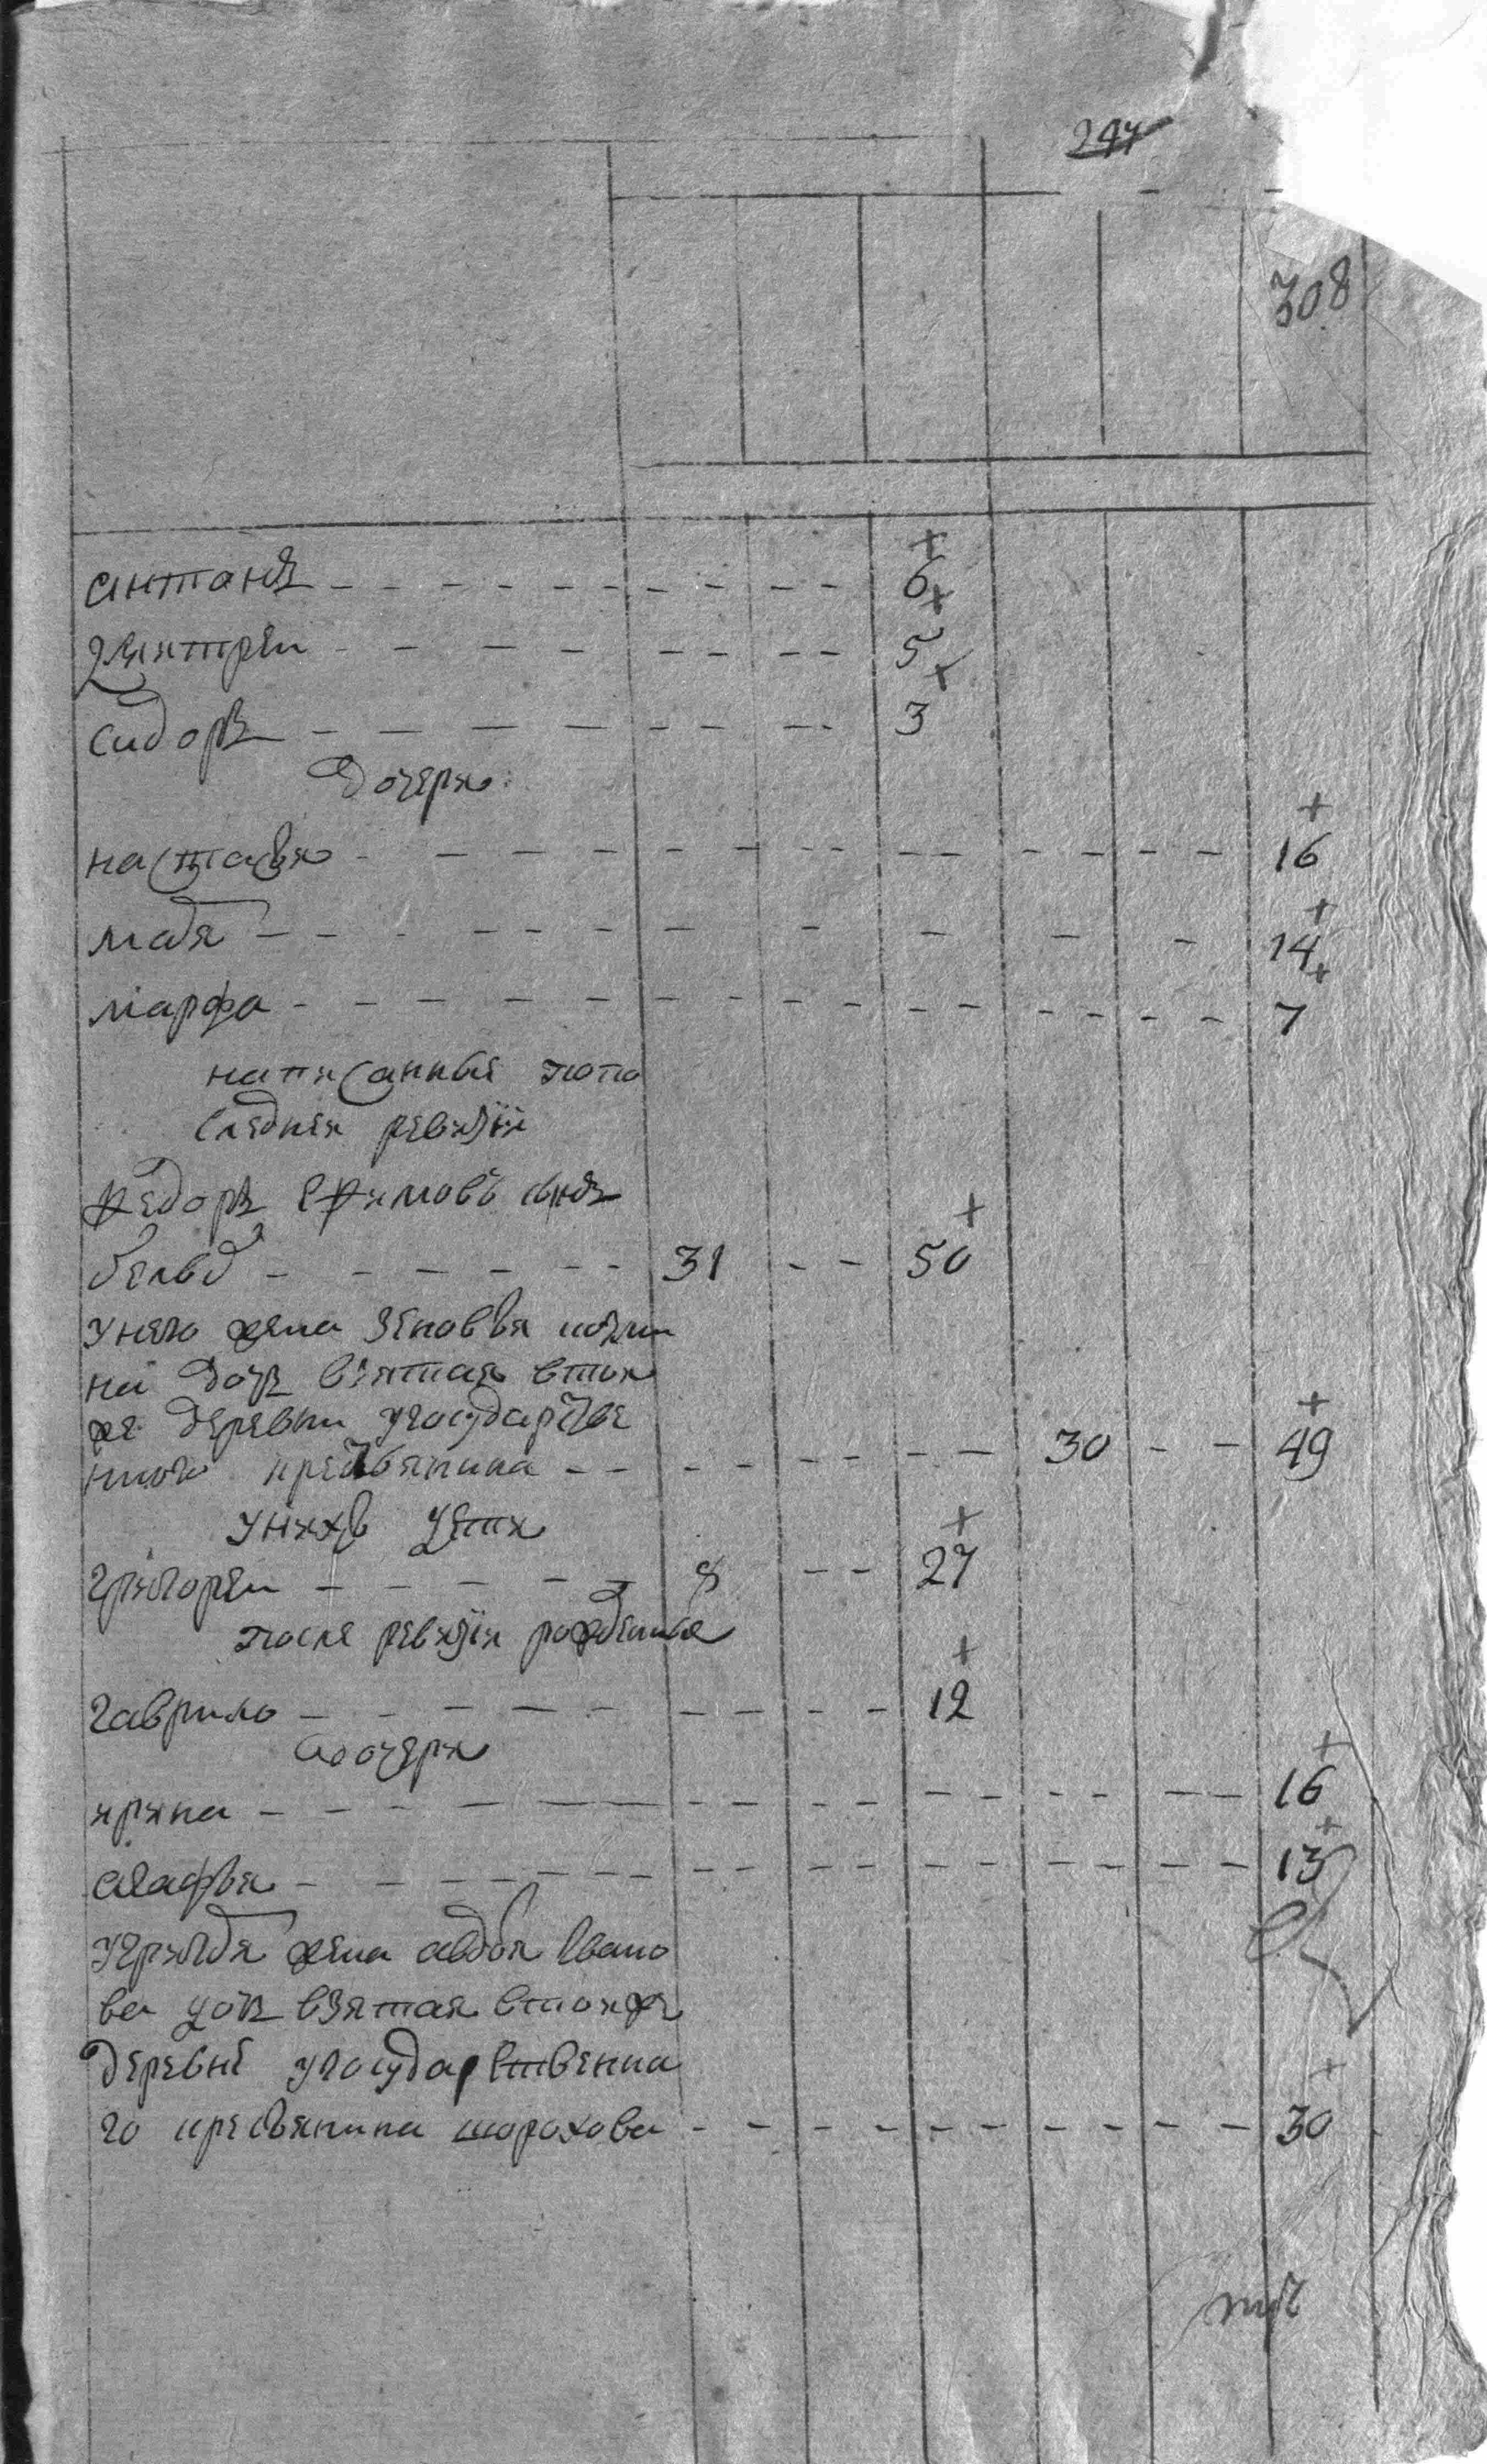 247
308
антонъ - - - - - - - - - 6
дмитреи - - - - - - - - 5
сидоръ - - - - - - - - 3
дочери
настасья - - - - - - - - - - 16
мавра - - - - - - - - - - 14
марфа - - - - - - - - - - 7
написанные попо
следнеи ревизiи
Федоръ Ефимовъ сынъ
белыд - - - - - - 31 - - 50
у него жена Зеновья
на дочь взятая втои
же деревни у государстве
нного крестьянина - - - - - - 30 - - 49
у нихъ дети
григореи - - - - - 8 - - 27
после ревизiи рожденные
гаврило - - - - - - - - - 12
дочери
ирина - - - - - - - - - - 16
агафья - - - - - - - - - - 13
жена авдотья Ивано
ва дочь взятая втои же
деревне у государственна
го крестьянина шорохова - - - - - - - - 30